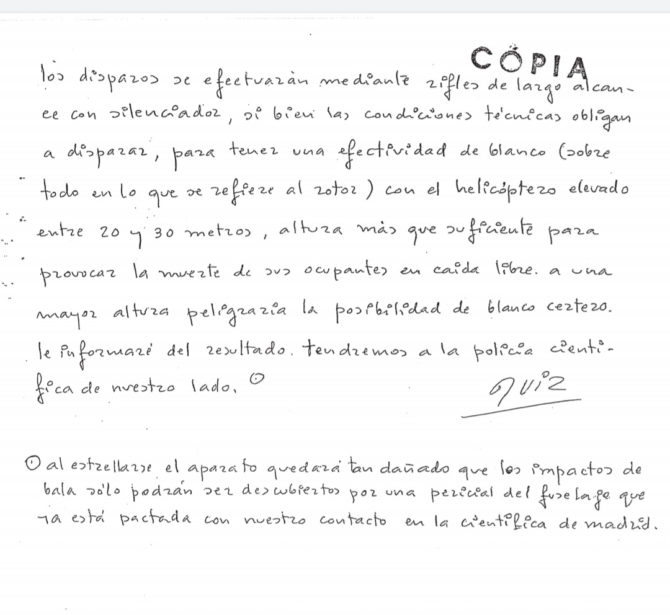 CÓPIA
los disparos se efectuarán mediante rifles de largo alcan-
ce con silenciador, si bien las condiciones técnicas obligan
a disparar, para tener una efectividad de blanco (sobre
todo en lo que se refiere al rotor) con el helicóptero elevado
entre 20 y 30 metros, altura más que suficiente para
provocar la muerte de sus ocupantes en caída libre. a una
mayor altura peligraría la posibilidad de blanco certero.
le informaré del resultado. tendremos a la policía cientí-
fica de nuestro lado. ⊙
RUIZ
⊙ al estrellarse el aparato quedará tan dañado que los impactos de
bala sólo podrán ser descubiertos por una pericial del fuselage que
ya está pactada con nuestro contacto en la científica de madrid.